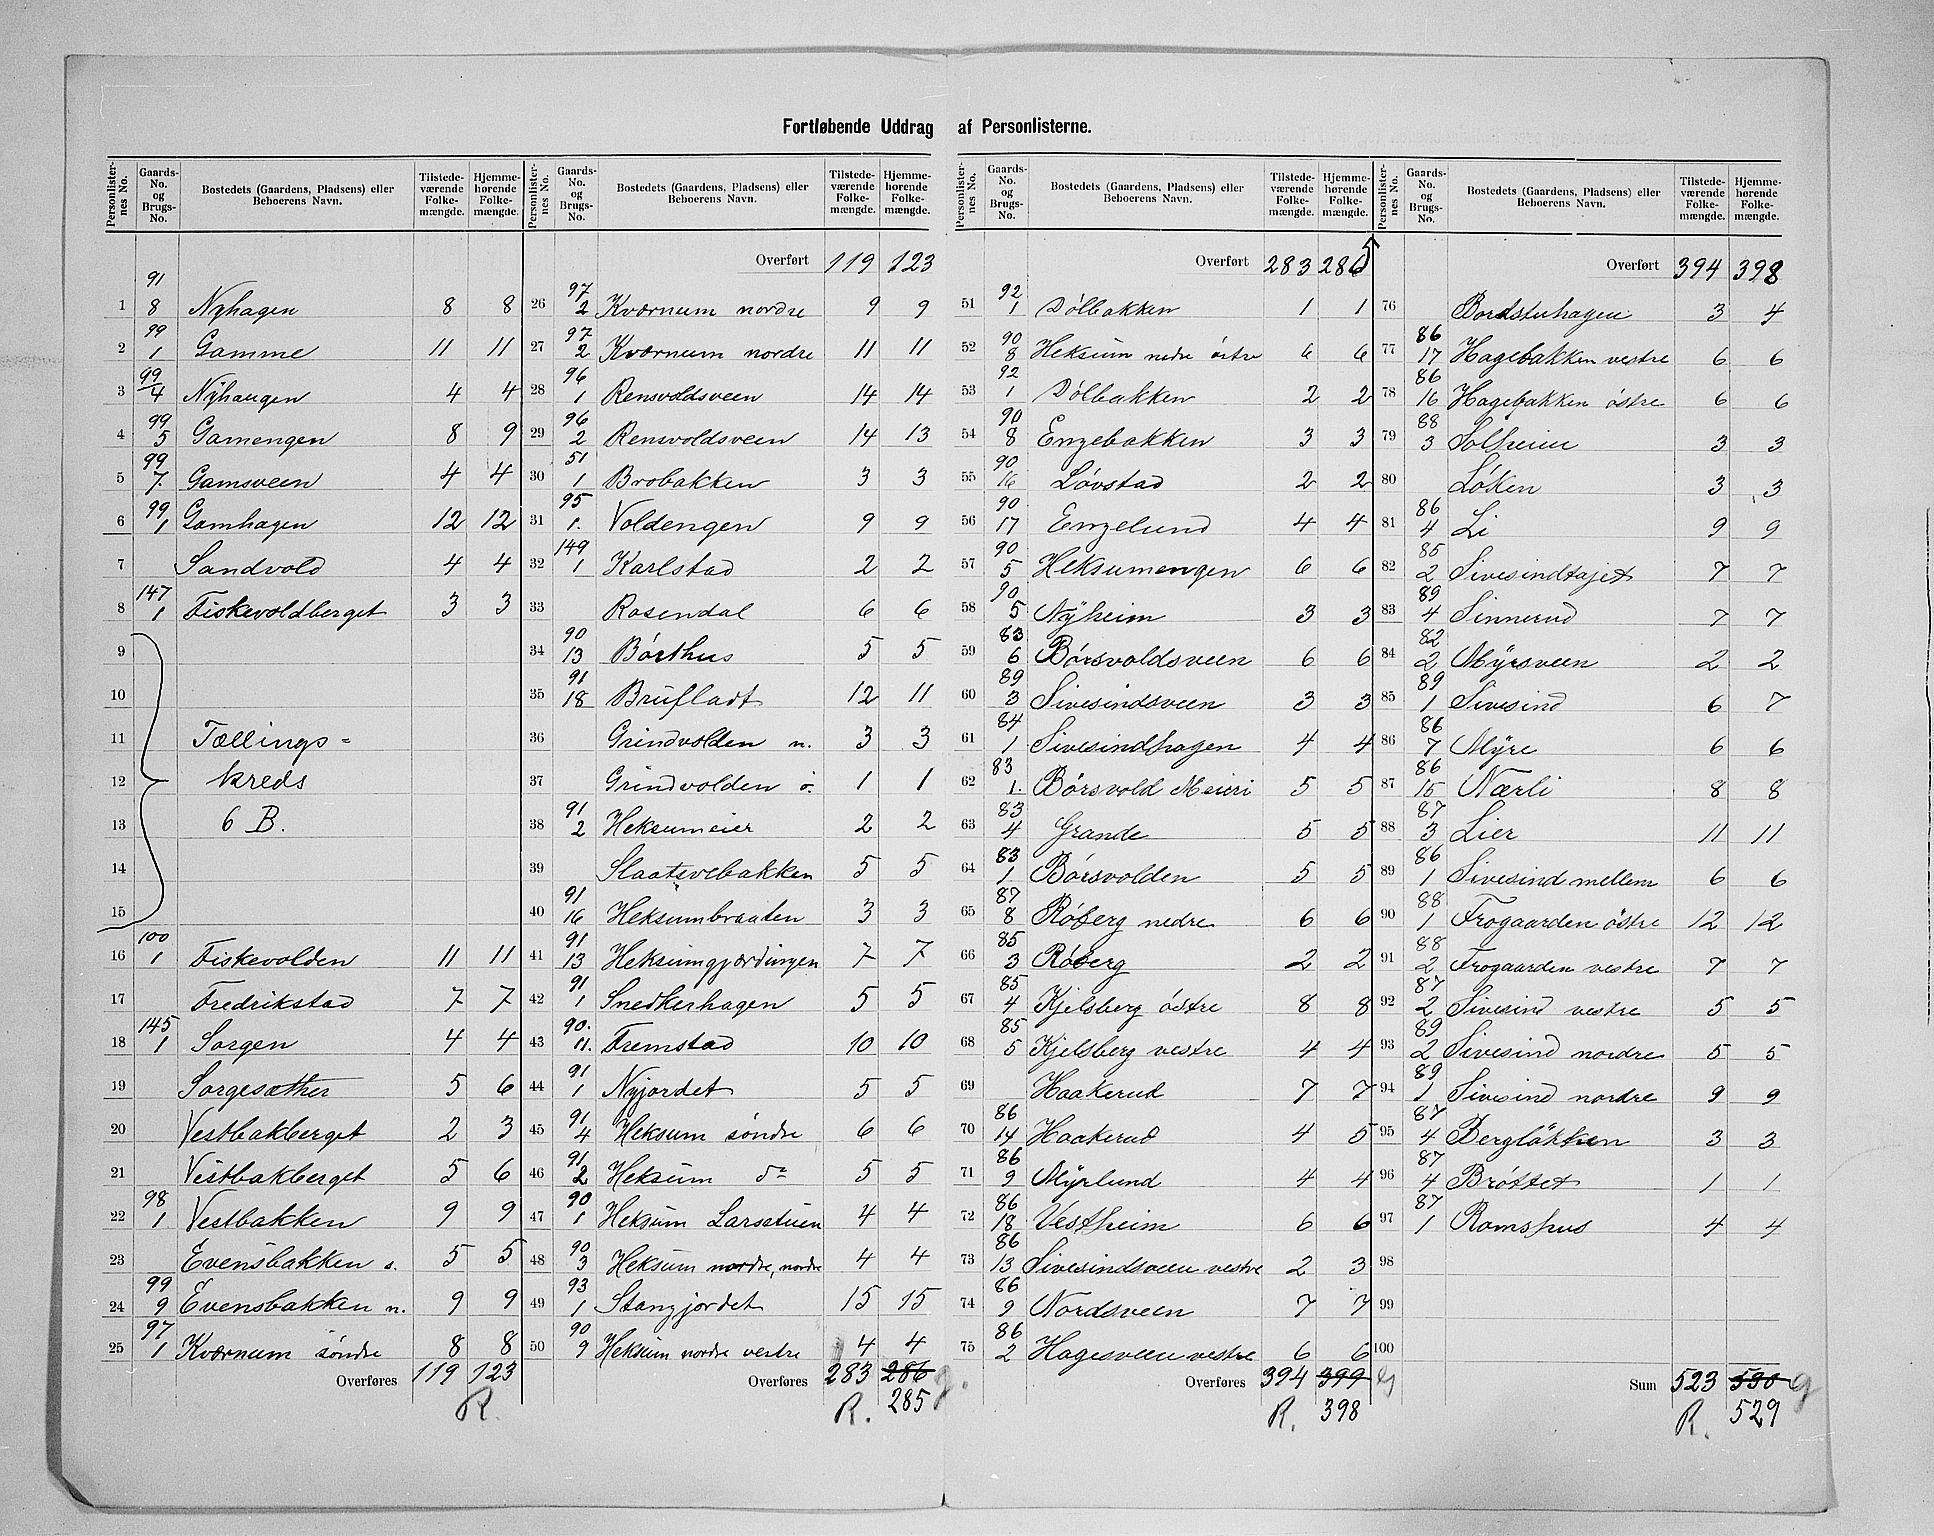 Fortløbende Uddrag af Personlisterne.
Personlister-nes No. Gaards-No. og Brugs-No. Bostedets (Gaardens, Pladsens) eller Beboerens Navn. Tilstede-værende Folke-mængde. Hjemme-hørende Folke-mængde.
1 91/8 Nyhagen 8 8
2 99/1 Gamme 11 11
3 99/4 Nyhaugen 4 4
4 99/5 Gamengen 8 9
5 99/7. Gamsveen 4 4
6 99/1 Gamhagen 12 12
7 Sandvold 4 4
8 147/1 Fiskevoldberget 3 3
9
10
11 Tællings=
12 kreds
13 6 B.
14
15
16 100/1 Fiskevolden 11 11
17 Fredrikstad 7 7
18 145/1 Sorgen 4 4
19 Sorgesæther 5 6
20 Vestbakberget 2 3
21 Vestbakberget 5 6
22 98/1 Vestbakken 9 9
23 Evensbakken s. 5 5
24 99/9 Evensbakken n. 9 9
25 97/1 Kværnum søndre 8 8
Overføres 119 123
R.
Personlister-nes No. Gaards-No. og Brugs-No. Bostedets (Gaardens, Pladsens) eller Beboerens Navn. Tilstede-værende Folke-mængde. Hjemme-hørende Folke-mængde.
Overført 119 123
26 97/2 Kværnum nordre 9 9
27 97/2 Kværnum nordre 11 11
28 96/1 Rensvoldsveen 14 14
29 96/2 Rensvoldsveen 14 13
30 51/1 Brobakken 3 3
31 95/1. Voldengen 9 9
32 149/1 Karlstad 2 2
33 Rosendal 6 6
34 90/13 Børthus 5 5
35 91/18 Brufladt 12 11
36 Grindvolden n. 3 3
37 Grindvolden ö. 1 1
38 91/2 Heksumeier 2 2
39 Slaatsvebakken 5 5
40 91/16 Heksumbraaten 3 3
41 91/13 Heksumgjærdingen 7 7
42 91/1 Snedkerhagen 5 5
43 90./11. Fremstad 10 10
44 91/1 Nyjordet 5 5
45 91/4 Heksum søndre 6 6
46 91/2 Heksum do 5 5
47 90/1 Heksum Larsstuen 4 4
48 90/3 Heksum nordre, nordre 4 4
49 93/1 Stangjordet 15 15
50 90/9 Heksum nordre vestre 4 4
Overføres 283 286
R. 285
Personlister-nes No. Gaards-No. og Brugs-No. Bostedets (Gaardens, Pladsens) eller Beboerens Navn. Tilstede-værende Folke-mængde. Hjemme-hørende Folke-mængde.
Overført 283 286 5
51 92/1 Dølbakken 1 1
52 90/8 Heksum nedre östre 6 6
53 92/1 Dølbakken 2 2
54 90/8 Engebakken 3 3
55 90/16 Løvstad 2 2
56 90/17 Engelund 4 4
57 90/5 Heksumengen 6 6
58 90/5 Nyheim 3 3
59 83/6 Børsvoldsveen 6 6
60 89/3 Sivesindsveen 3 3
61 84/1 Sivesindhagen 4 4
62 83/1. Børsvold Meieri 5 5
63 83/4 Grande 5 5
64 83/1. Børsvolden 5 5
65 87/8 Røberg nedre 6 6
66 85/3 Røberg 2 2
67 85/4 Kjelsberg östre 8 8
68 85/5 Kjelsberg vestre 4 4
69 Haakerud 7 7
70 86/14 Haakerud 4 5
71 86/9 Myrlund 4 4
72 86/18 Vestheim 6 6
73 86/13 Sivesindsveen vestre 2 3
74 86/9 Nordsveen 7 7
75 86/2 Hagesveen vestre 6 6
Overføres 394 399
R. 398
Personlister-nes No. Gaards-No. og Brugs-No. Bostedets (Gaardens, Pladsens) eller Beboerens Navn. Tilstede-værende Folke-mængde. Hjemme-hørende Folke-mængde.
Overført 394 398
76 Bordstuhagen 3 4
77 86/17 Hagebakken vestre 6 6
78 86/16 Hagebakken östre 6 6
79 88/3 Solheim 3 3
80 Løken 3 3
81 86/4 Li 9 9
82 85/2 Sivesindtajet 7 7
83 89/4 Sinnerud 7 7
84 82/2 Myrsveen 2 2
85 89/1 Sivesind 6 7
86 86/7 Myre 6 6
87 86/15 Nærli 8 8
88 87/3 Lier 11 11
89 86/1 Sivesind mellem 6 6
90 88/1 Frogaarden östre 12 12
91 88/2 Frogaarden vestre 7 7
92 87/2 Sivesind vestre 5 5
93 89/2 Sivesind nordre 5 5
94 89/1 Sivesind nordre 9 9
95 87/4 Bergløkken 3 3
96 87/4 Brøttet 1 1
97 87/1 Romshus 4 4
98
99
100
Sum 523 530
R. 529